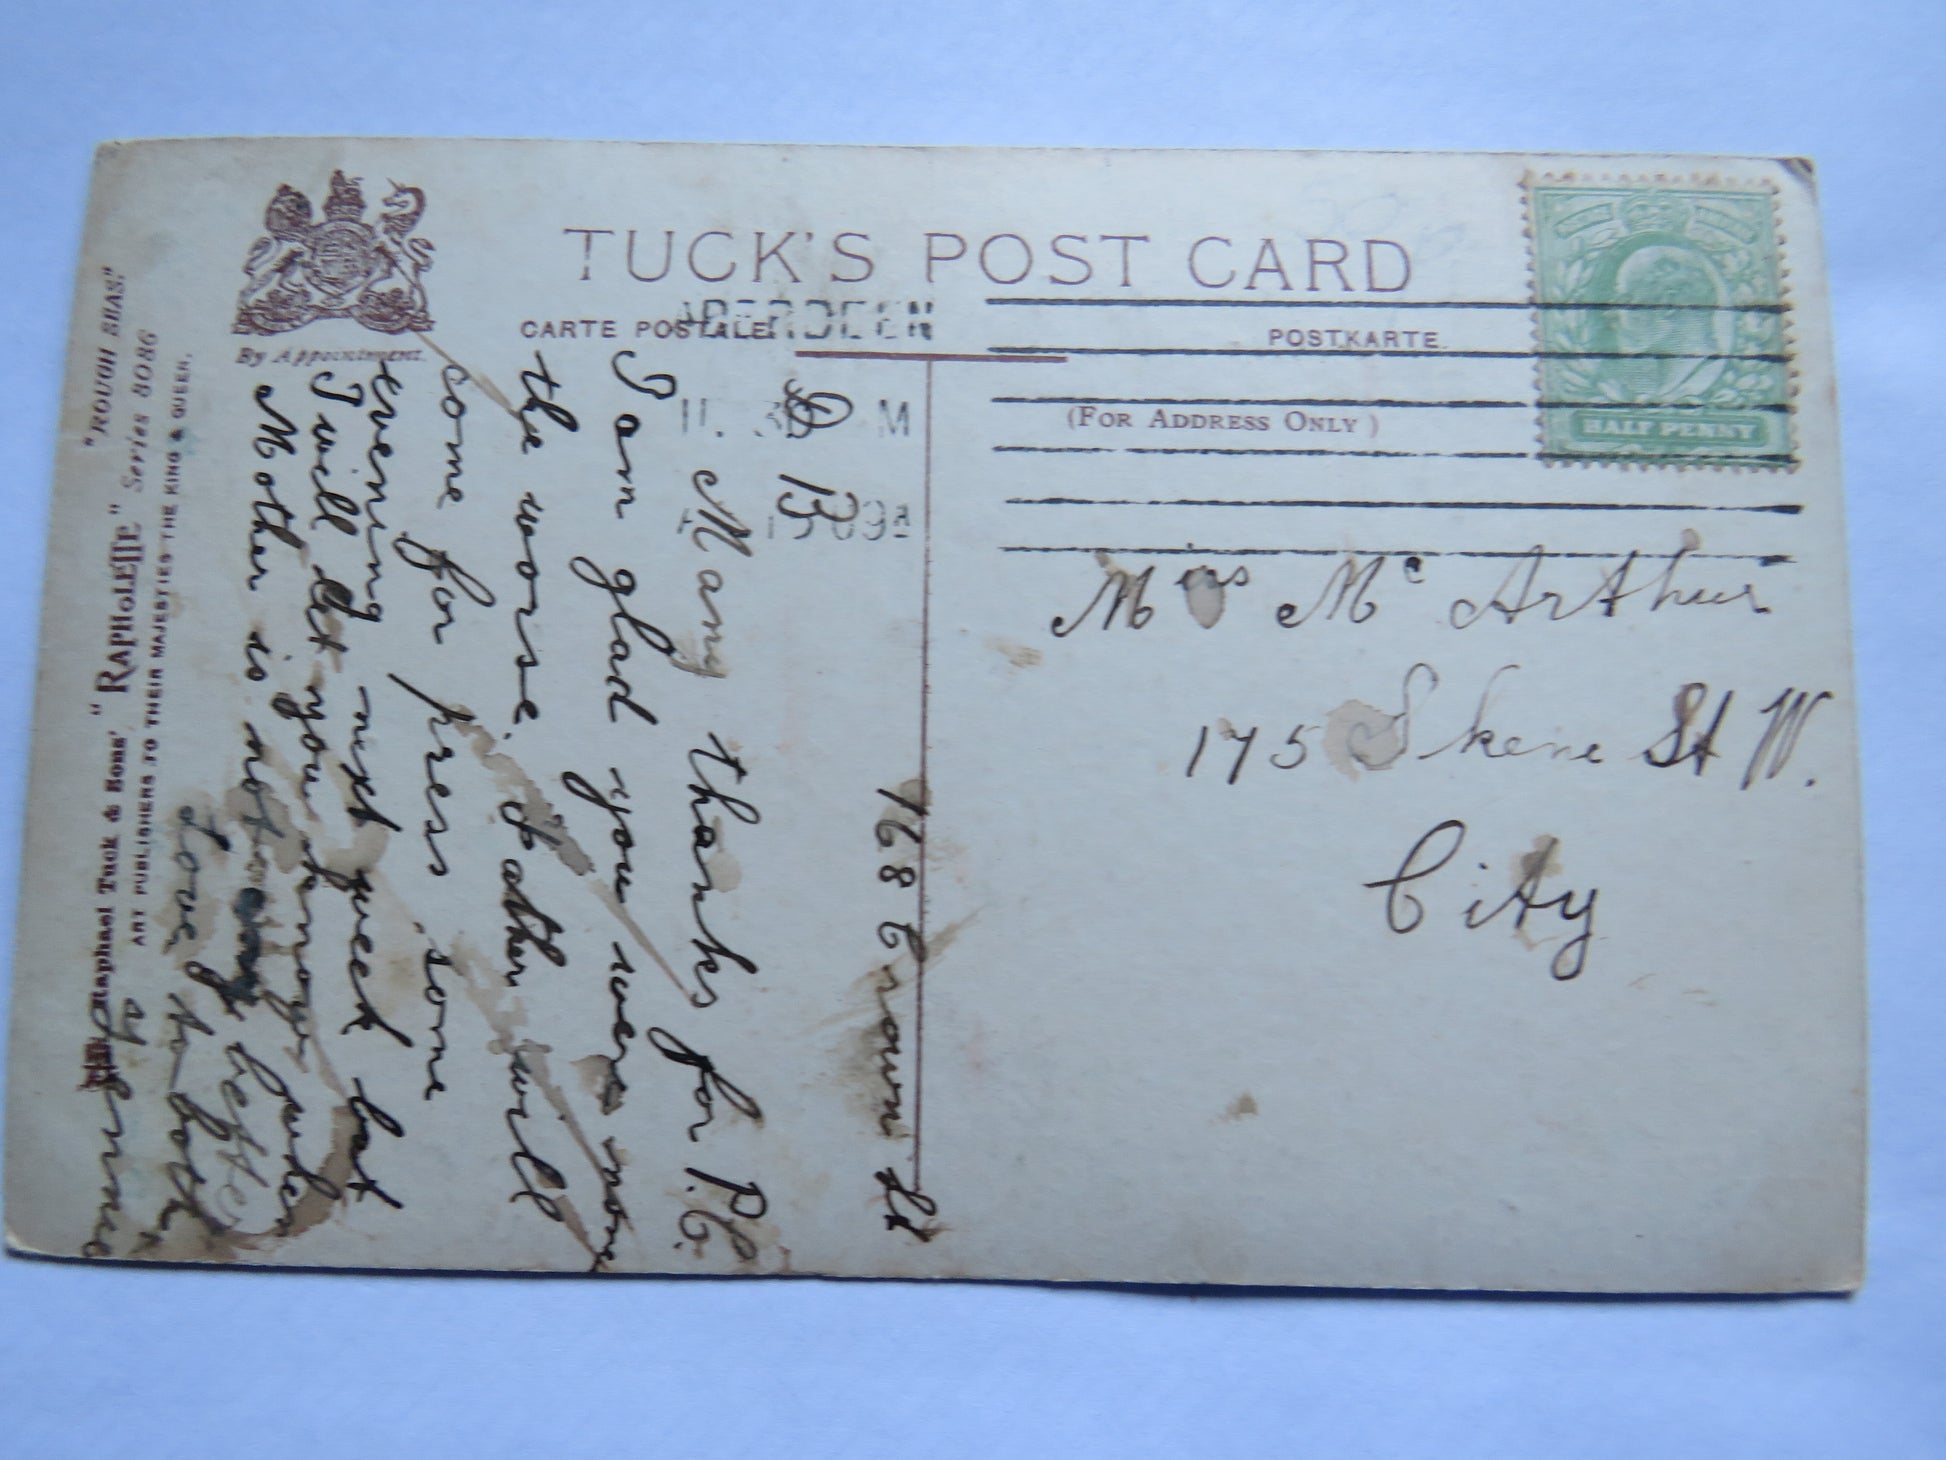 TUCK'S POST CARD
CARTE POSTALE.
POSTKARTE.
(FOR ADDRESS ONLY)
By Appointment.
ABERDEEN
11. 30 M
HALF PENNY
Mrs Mc Arthur
175 Skene St W.
City
168 Crown St
D
13
Many thanks for P.C.
I am glad you were none
the worse. Father will
come for press some
evening next week but
I will let you know when
Mother is not
Love to both
Raphael Tuck & Sons' "RAPHOLETTE" Series 8086
"ROUGH SEAS."
ART PUBLISHERS TO THEIR MAJESTIES THE KING & QUEEN.